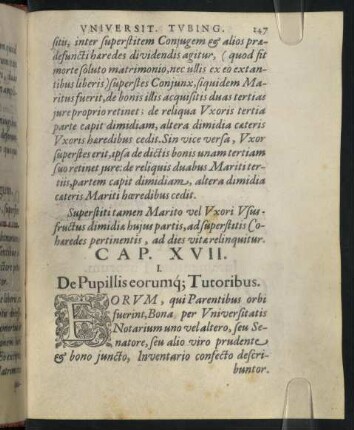 VNIVERSIT. TVBING. 247
situ, inter superstitem Conjugem & alios præ-
defuncti hæredes dividendis agitur, (quod fit
morte soluto matrimonio, nec ullis ex eo extan-
tibus liberis) superstes Conjunx, siquidem Ma-
ritus fuerit, de bonis illis acquisitis duas tertias
jure proprio retinet: de reliqua Vxoris tertia
parte capit dimidiam, altera dimidia cæteris
Vxoris hæredibus cedit. Sin vice versâ, Vxor
superstes erit, ipsa de dictis bonis unam tertiam
suo retinet jure: de reliquis duabus Mariti ter-
tiis, partem capit dimidiam, altera dimidia
cæteris Mariti hæredibus cedit.
Superstiti tamen Marito vel Vxori Vsus-
fructus dimidiæ hujus partis, ad superstitis Co-
hæredes pertinentis, ad dies vitæ relinquitur.
CAP. XVII.
I.
De Pupillis eorumq́; Tutoribus.
EORVM, qui Parentibus orbi
fuerint, Bona per Vniversitatis
Notarium uno vel altero, seu Se-
natore, seu alio viro prudente
& bono juncto, Inventario confecto descri-
buntor.